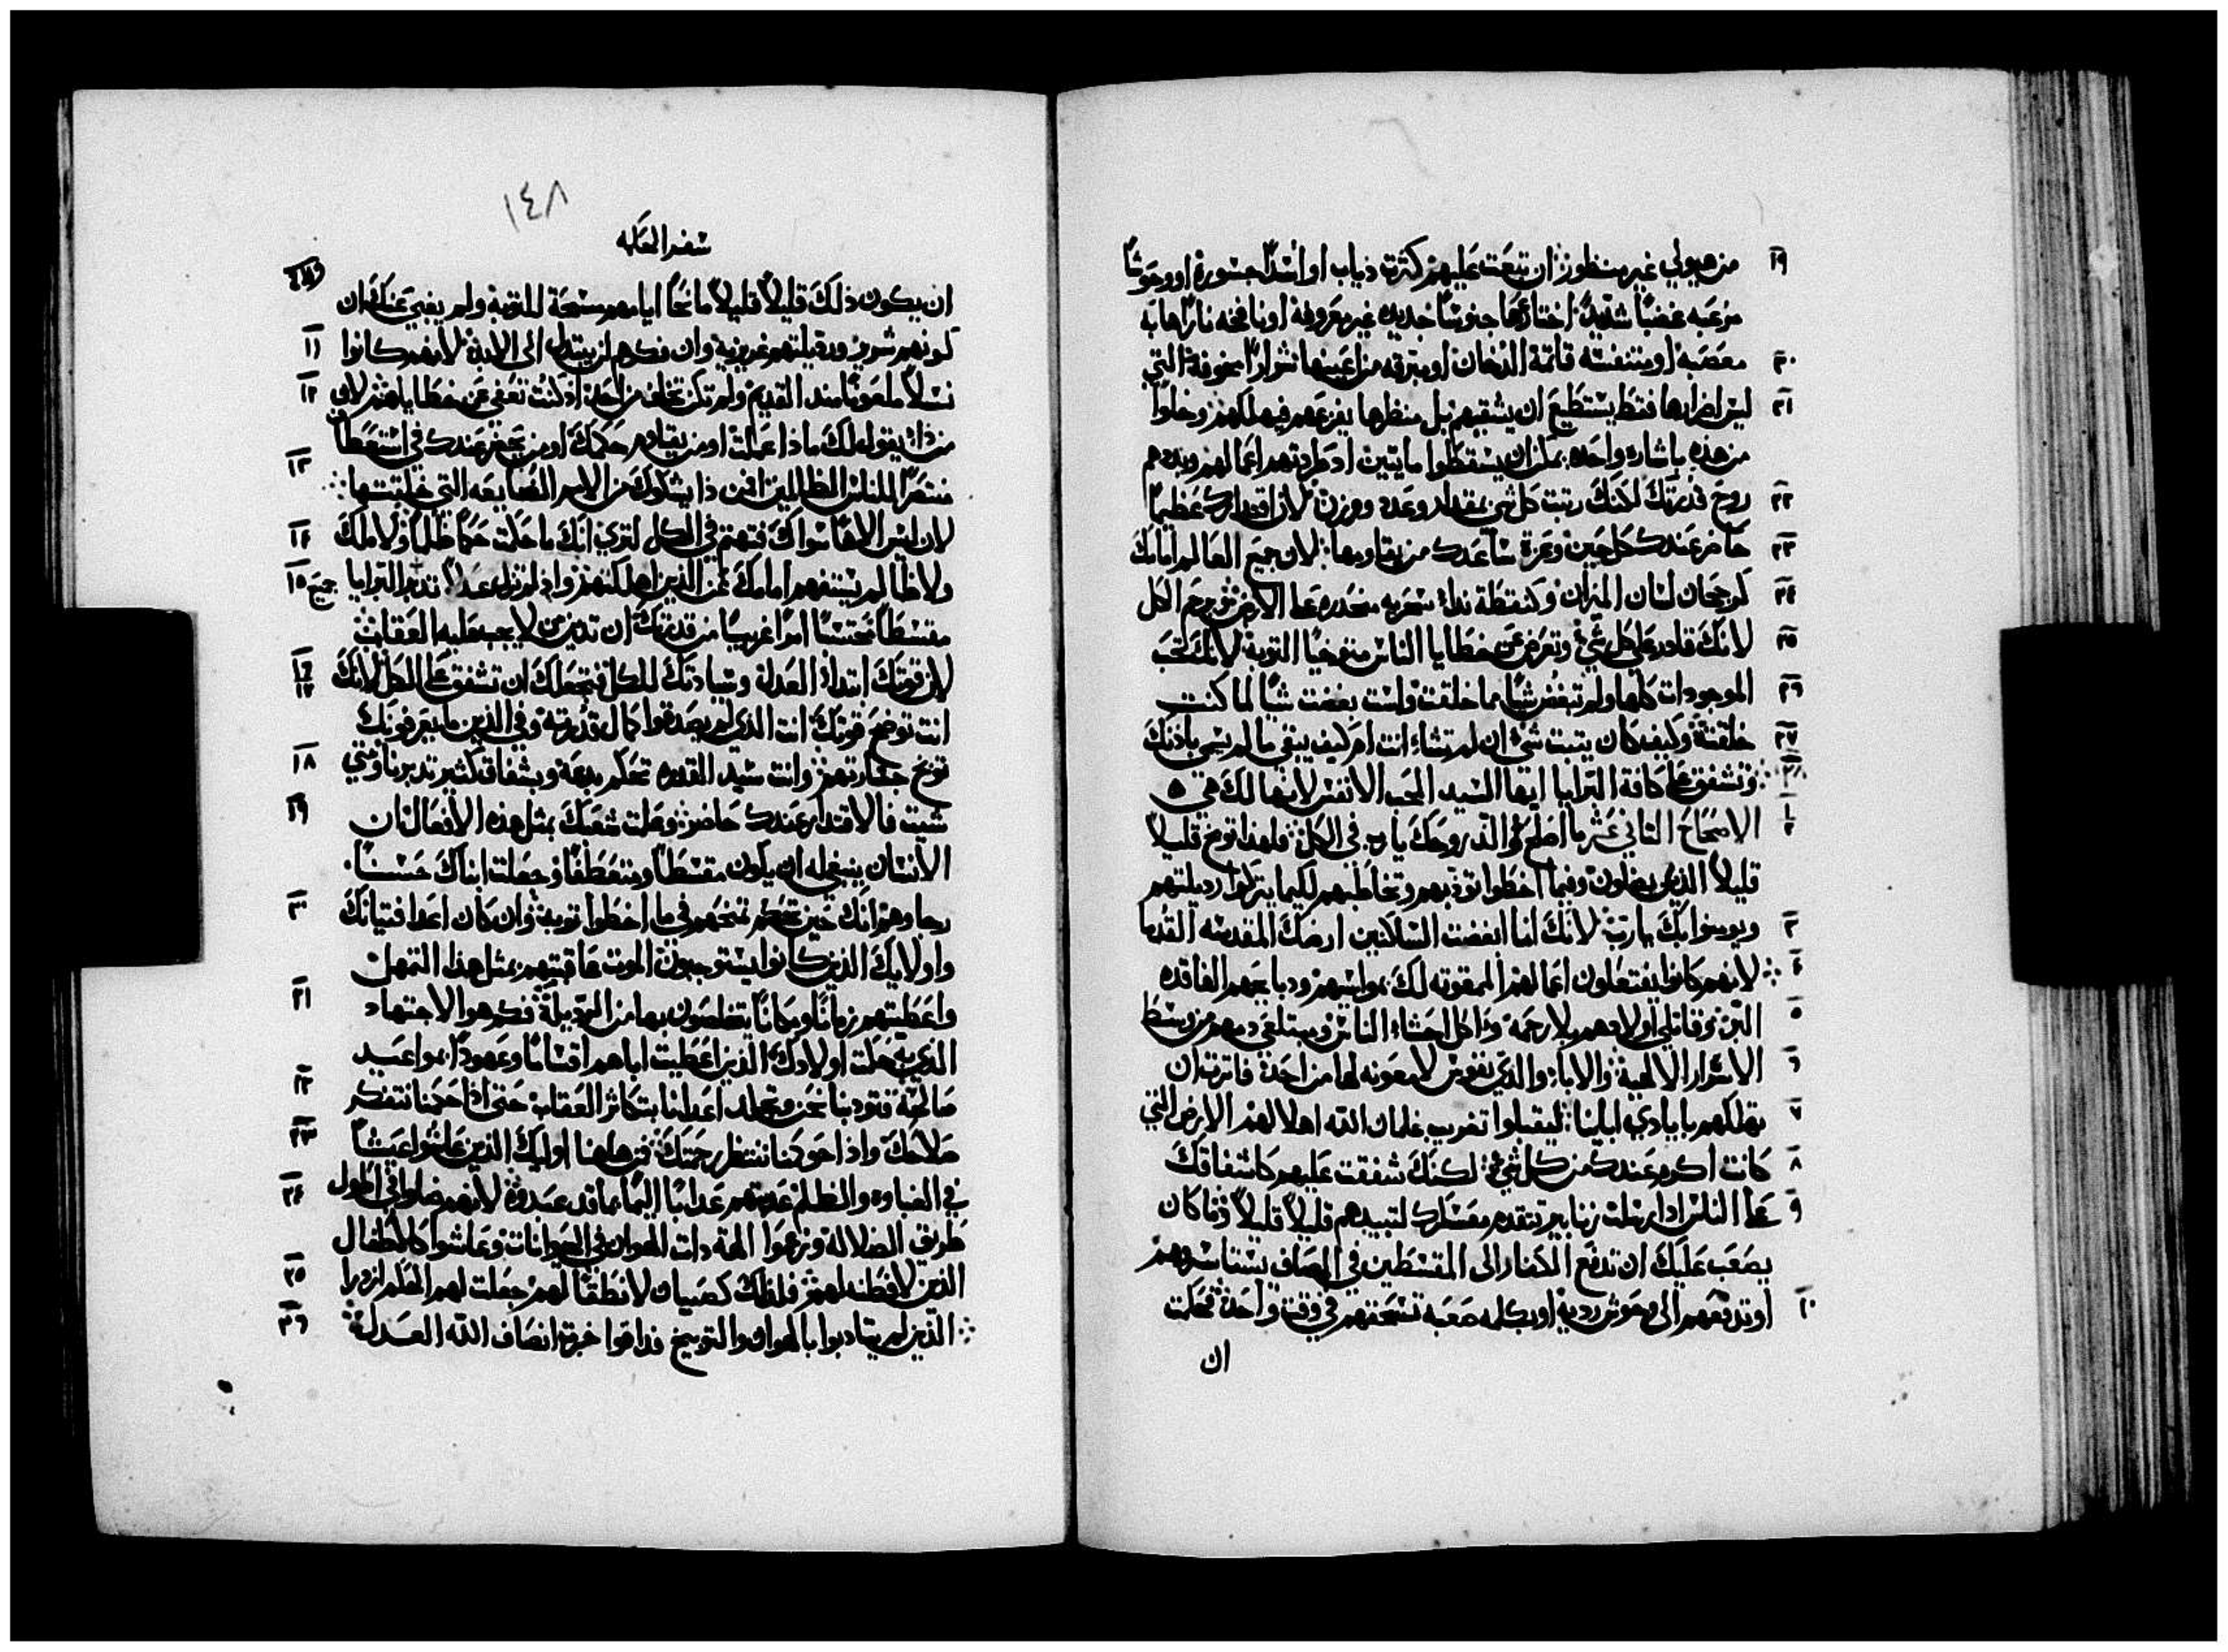 ١٩ من هيولي غير منظور ان تبعت عليهم كثرت دياب او اشدا جسورة او وحوشاً
مزعبه غضباً شديداً اختارها جنوساً جديده غير معروفة او نافخه ناراً هابه
٢٠ معصبة او منتنفسه قاتمة الدخان او مبرقه من اعينها شراراً مخوفة التي
٢١ ليس اضرارها فقط يستطيع ان يشقيهم بل منظرها يفزعهم فيهلكهم وخلواً
من هذه باشاره واحده يمكن ان يسقطوا مايتين اد طردتهم اعمالهم وبددهم
٢٢ روح قدرتك لكنك رتبت كل شي بمقدار وعدد ووزن لان اقتدارك عظيماً
٢٣ حاضر عندك كل حين وعزة ساعدك من يقاومها لان جميع العالم امامك
٢٤ كرجحان لسان الميزان وكنقطة نداء سحريه منحدره على الارض ترحم الكل
٢٥ لانك قادر على كل شي وتعرض عن خطايا الناس متوخياً التوبة لانك تحب
٢٦ الموجودات كلها ولم تبغض شياً مما خلقت ولست بغضت شياً لما كنت
٢٧ خلقته وكيف كان يتبت شي ان لم تشاء انت ام كيف يبقي ما لم يسمي باذنك
وتشفق على كافة البرايا ايها السيد المحب الانفس لانها لك هي ٥
الاصحاح الثاني عشر ما اصلح والذ روحك يا رب في الكل فلهذا توبخ قليلاً
قليلاً الذين يضلون وفيما اخطوا توذبهم وتخاطبهم لكيما يتركوا رديلتهم
٣ ويومنوا بك يا رب لانك انما ابغضت السلاكنين ارضك المقدسه القدما
٤ لانهم كانوا يفتعلون اعمالهم الممقوته لك بمواسهم ودبايحهم الفاقده
٥ البر وقاتلي اولادهم بلا رحمة واكل احشاء الناس ومبتلعي دمهم من وسط
٦ الاسرار الالهية والاباء والدي نفوس لا معونه لها من احد فاترت ان
٧ تهلكهم بايادي اباينا ليقبلوا تغريب غلمان الله اهلا لهم الارض التي
٨ كانت اكرم عندك من كل شي لكنك شفقت عليهم كاشفاقك
٩ على الناس اد ارسلت زنابير تتقدم معسكرك لتبيدهم قليلاً قليلاً وما كان
يصعب عليك ان تدفع الكفار الى المقسطين في المصاف يستاسروهم
١٠ او تدفعهم الى وحوش رديه او بكلمه صعبه تسحقهم في وقت واحد فحكمت
ان
١٤٨
سفر الحكمه
ان يكون ذلك قليلاً قليلاً مانحاً اياهم سعة للتوبة ولم يغبي عنك ان
١١ كونهم شرير ورديلتهم غريزية وان فكرهم لن يبتدل الى الابد لانهم كانوا
١٢ نسلاً ملعوناً مند القديم ولم تكن تخاف من احد اذ كنت تعفي عن خطاياهم لان
من ذا يقول لك ماذا عملت او من يقاوم حكمك او من يحضر عندك في استعطا
١٣ منتصراً للناس الظالمين فمن ذا يشكوك من الامم الضايعه التي خلقتها
١٤ لان ليس الاهاً سواك فتهتم في الكل لتري انك ما حكمت حكماً ظلماً ولا ملك
١٥ ولا ظالم يستفهم امامك عن الذين اهلكتهم واذ لم تزل عدلاً تدبر البرايا جميع
مقسطاً محتسباً امراً غريباً من قدرتك ان تدين من لا يجب عليه العقاب
١٦ ١٧ لان قوتك ابتداء العدل وسيادتك للكل فتجعلك ان تشفق على الكل لانك
انت توضح قوتك انت الذي لم يصدقوا كمال قدرته وفي الذين ما يعرفونك
١٨ توبخ جسارتهم وانت سيد القدره تحكم بدعة وبشفاق كثير تدبرنا ومتي
١٩ شيت فالاقتدار عندك حاضر وعلمت شعبك بمثل هذه الافعال ان
الانسان ينبغي له ان يكون مقسطاً ومتعطفاً وجعلت ابناك حسناً
٢٠ رجا وهو انك حين تحكم تمنحهم في ما اخطوا توبه وان كان اعدا فتيانك
واولايك الذين كانوا يستوجبون الموت عاقبتهم بمثل هذا التمهل
٢١ واعطيتهم زماناً ومكاناً يتخلصون بهما من الرديلة فكم هو الاجتهاد
الذي به حكمت اولادك الذين اعطيت اباهم اقساماً وعهوداً بمواعيد
٢٢ صالحة فتودبنا نحن وتجلد اعدانا بتكاثر العقاب حتى اذا حكمنا نتفكر
٢٣ صلاحك واذا حوكمنا ننتظر رحمتك فمن هاهنا اوليك الذين عاشوا عيشاً
٢٤ في الغباوه والظلم عدبتهم عداباً اليماً بما قد عبدوه لانهم ضلوا في اطول
طريق الضلاله وزعموا الهة دات الهوان في الحيوانات وعاشوا كالاطفال
٢٥ الذين لا فطنه لهم فلذلك كصبيان لا نطقاً لهم جعلت لهم الحكم ازدرا
٢٦ الذين لم يتادبوا بالهوان والتوبيخ فداقوا خبرة انصاف الله العدل